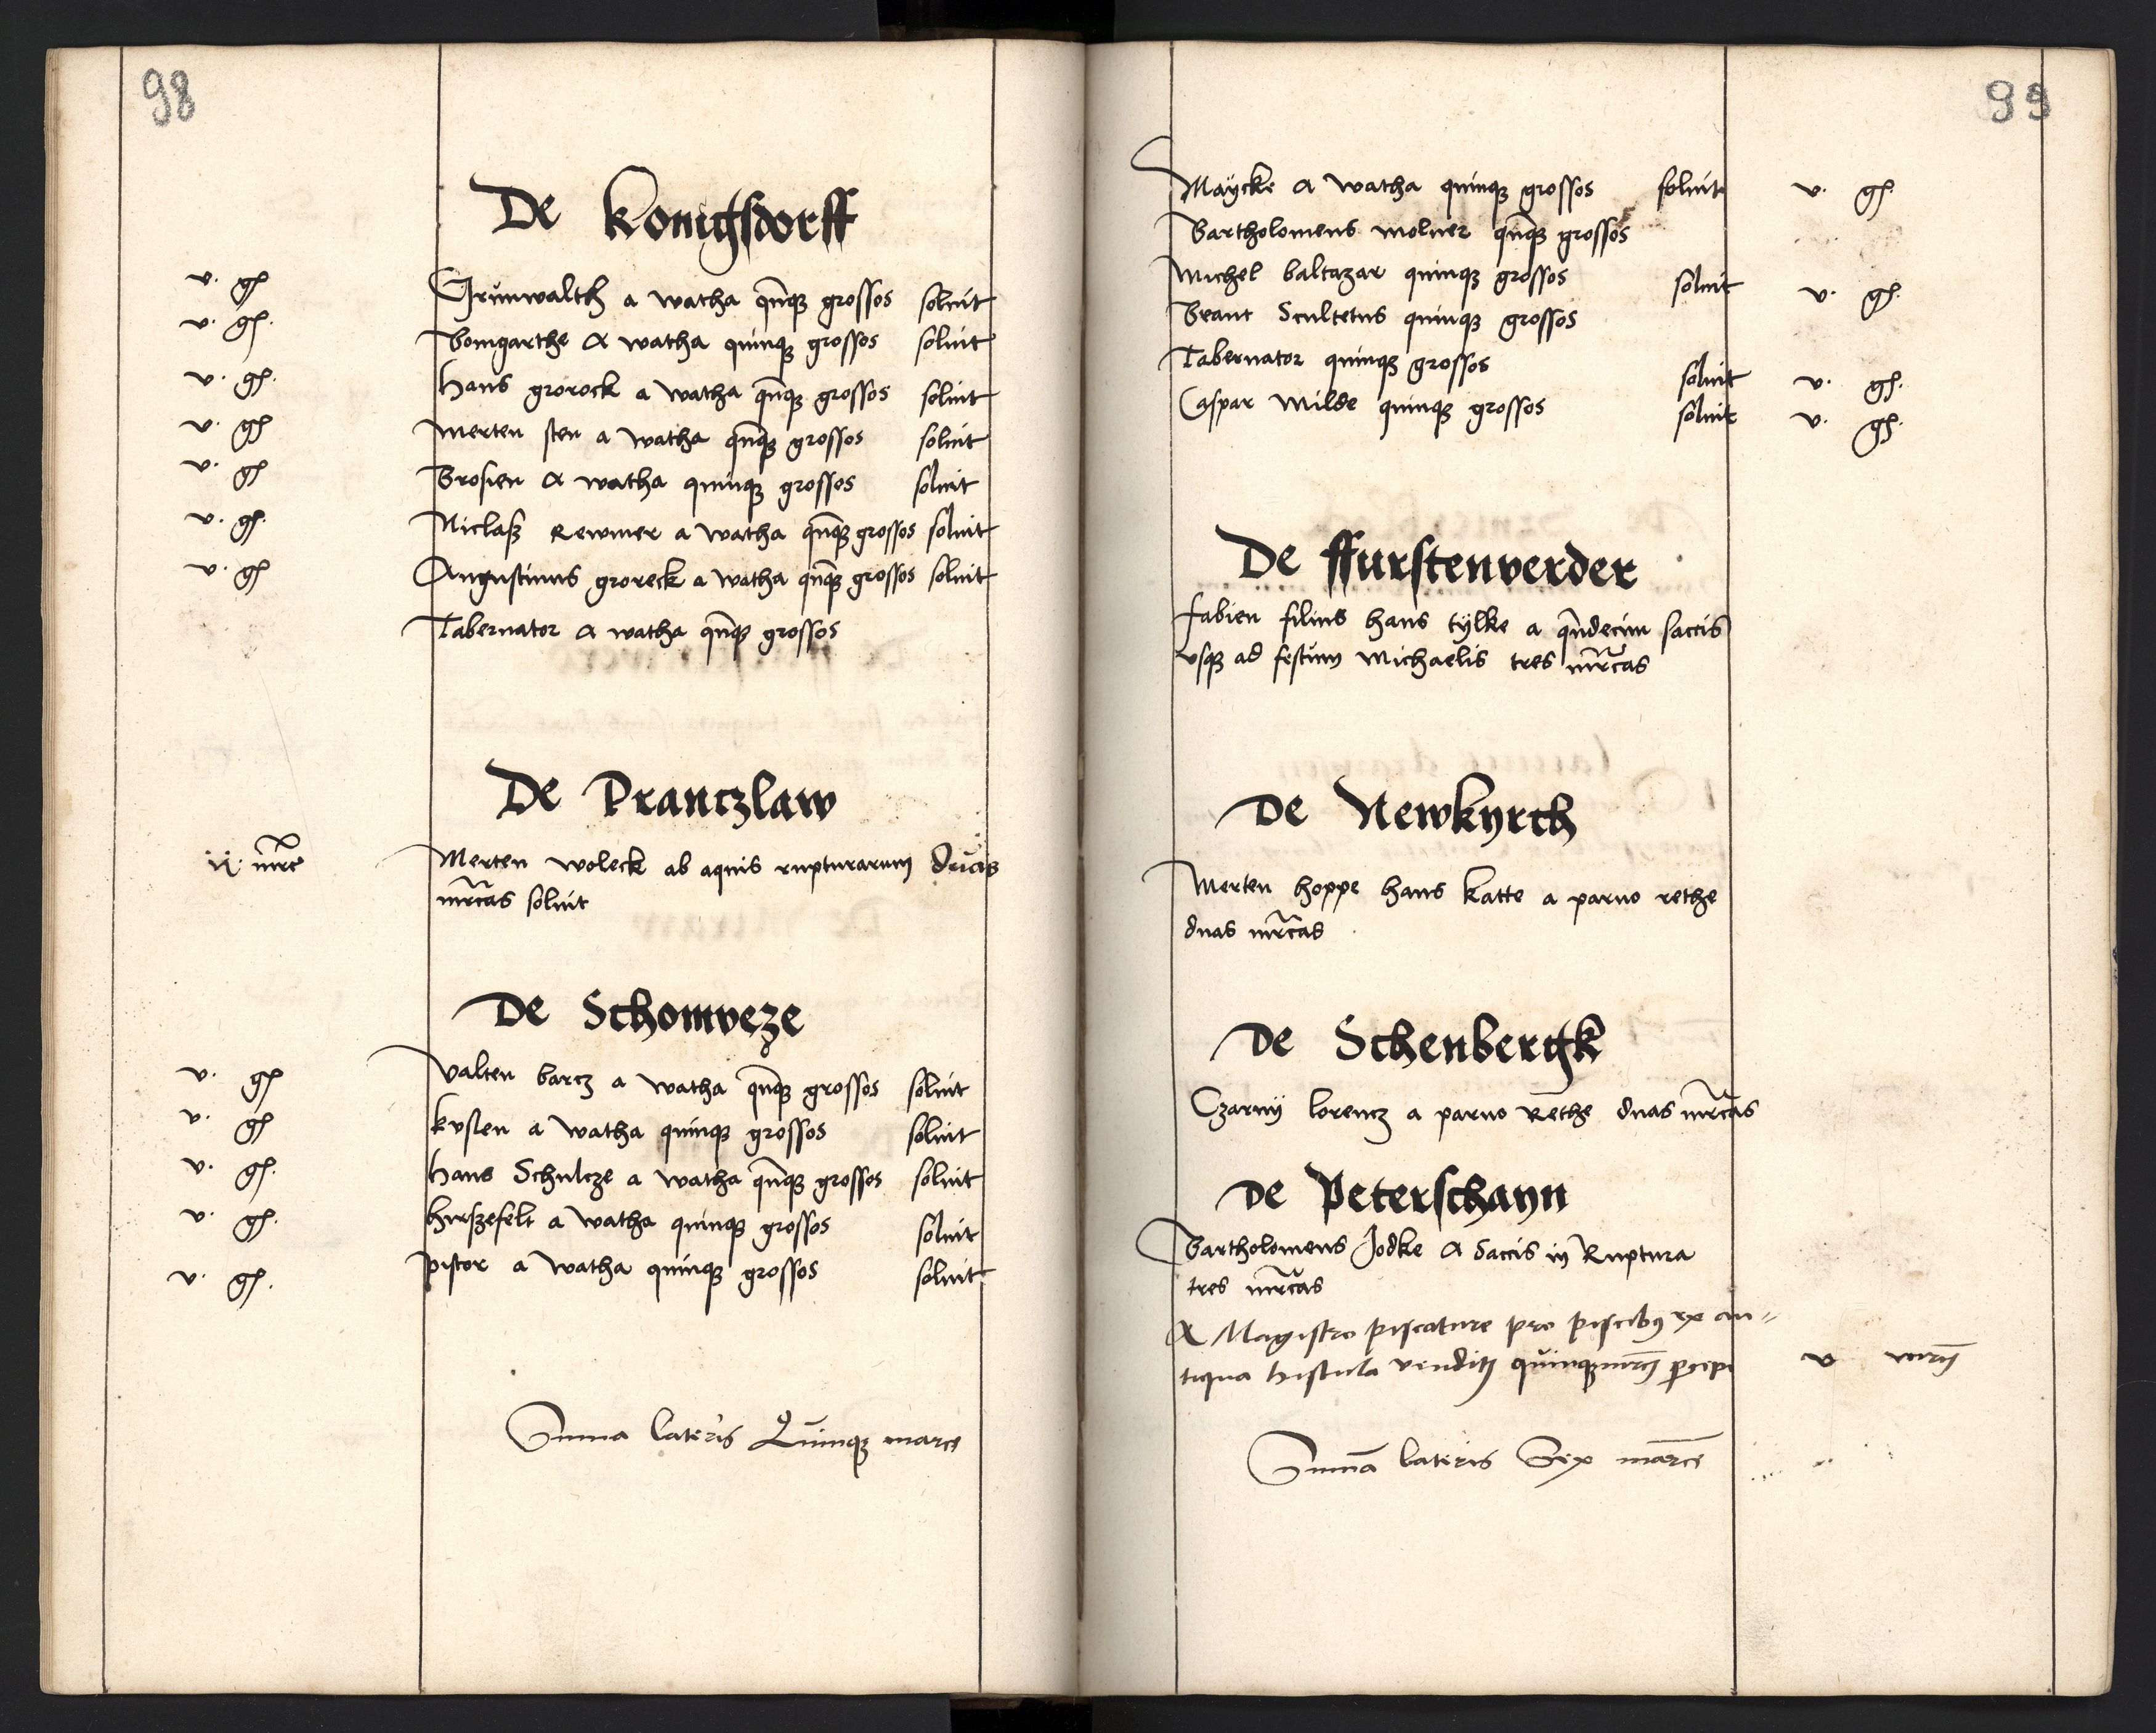 98
De Konigsdorff
v. gſ Grunwalth a watha qnq̃ grossos soluit
v. gſ. Bomgarthe a watha quinqȝ grossos soluit
v. gſ. Hans grorock a watha qnq̃ grossos soluit
v. gſ Merten sten a watha qnq̃ grossos soluit
v. gſ Brosien a watha quinqȝ grossos soluit
v. gſ. Niclaß Rewmer a watha qnq̃ grossos soluit
v. gſ Augustinus groreck a watha qnq̃ grossos soluit
Tabernator a watha qnq̃ grossos
De Pranczlaw
ij. mrc Merten woleck ab aquis rupturarum duas
mrcas soluit
De Schonweze
v. gſ Valten barcz a watha qnq̃ grossos soluit
v. gſ kuslen a watha quinqȝ grossos soluit
v. gſ. Hans Schulcze a watha qnq̃ grossos soluit
v. gſ. hirszefelt a watha quinqȝ grossos soluit
v. gſ. pistor a watha quinqȝ grossos soluit
Suma lateris Quinqȝ marce
99
Maÿcke a watha quinqȝ grossos soluit v. gſ.
Bartholomeus molner qnq̃ grossos
Michel baltazar quinqȝ grossos soluit v. gſ.
Brant Scultetus quinqȝ grossos
Tabernator quinqȝ grossos soluit v. gſ.
Caspar Milde quinqȝ grossos soluit v. gſ.
De ffurstenverder
fabien filius hans tÿlke a qndecim saccis
usqȝ ad festum Michaelis tres mrcas
De Newkyrch
Merten hoppe hans katte a paruo rethe
duas mrcas
De Schenbergk
Czarnÿ lorencz a paruo Rethe duas mrcas
De Peterschayn
Bartholomeus Jodke a Saccis in Ruptura
tres mrcas
A Magistro piscature pro piscibȝ ex an=
tiqua histula venditis quinqȝ mrcis percepi v mrcis
Suma lateris Sex marce